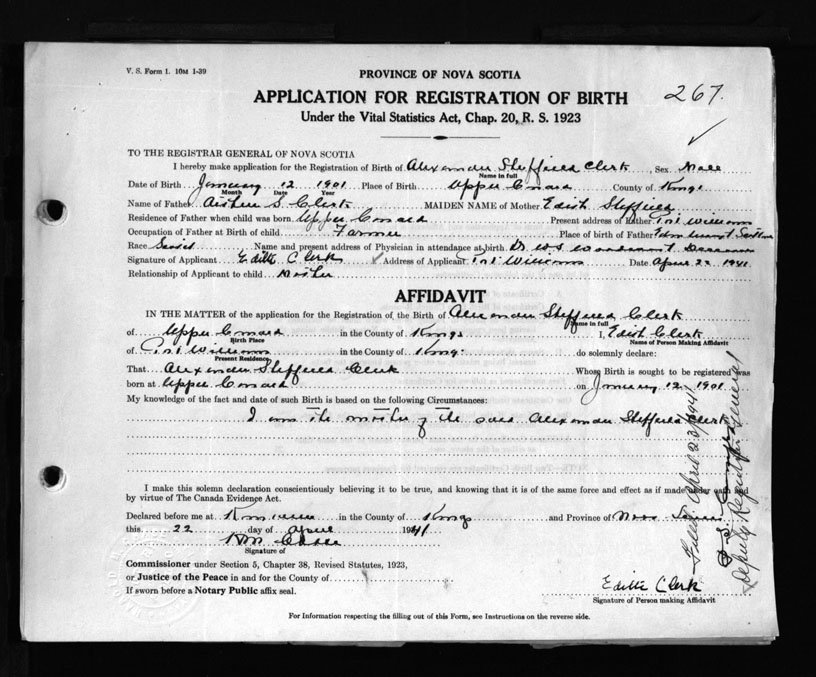 V. S. Form 1. 10M 1-39
PROVINCE OF NOVA SCOTIA
APPLICATION FOR REGISTRATION OF BIRTH
267.
Under the Vital Statistics Act, Chap. 20, R. S. 1923
TO THE REGISTRAR GENERAL OF NOVA SCOTIA
I hereby make application for the Registration of Birth of Alexander Sheffield Clerk Sex Male
Name in full
Date of Birth January 12 1901 Place of Birth Upper Canard County of Kings
Month Date Year
Name of Father Arthur S. Clerk MAIDEN NAME of Mother Edith Sheffield
Residence of Father when child was born Upper Canard Present address of Father Port Williams
Occupation of Father at Birth of child Farmer Place of Birth of Father
Race Name and present address of Physician in attendance at birth Dr W S Woodworth Deceased
Signature of Applicant Edith Clerk Address of Applicant Port Williams Date April 22 1941
Relationship of Applicant to child Mother
AFFIDAVIT
IN THE MATTER of the application for the Registration of the Birth of Alexander Sheffield Clerk
Name in full
of Upper Canard in the County of Kings I, Edith Clerk
Birth Place Name of Person Making Affidavit
of Port Williams in the County of Kings do solemnly declare:
Present Residence
That Alexander Sheffield Clerk Whose Birth is sought to be registered was
born at Upper Canard on January 12 1901
My knowledge of the fact and date of such Birth is based on the following Circumstances:
I am the mother of the said Alexander Sheffield Clerk
I make this solemn declaration conscientiously believing it to be true, and knowing that it is of the same force and effect as if made under oath and
by virtue of The Canada Evidence Act.
Declared before me at in the County of Kings and Province of Nova Scotia
this 22 day of April 1941
Signature of
Commissioner under Section 5, Chapter 38, Revised Statutes, 1923,
or Justice of the Peace in and for the County of
If sworn before a Notary Public affix seal.
Edith Clerk
Signature of Person making Affidavit
For Information respecting the filling out of this Form, see Instructions on the reverse side.
Filed April 23/1941
Deputy Registrar General